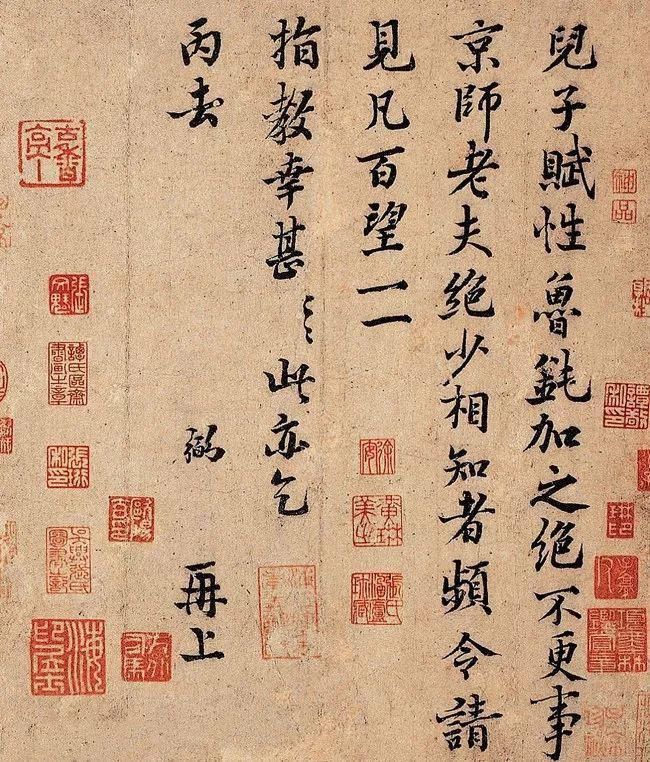 兒子賦性魯鈍加之絕不更事
京師老夫絕少相知者頻令請
見凡百望一一
指教幸甚〻此亦乞
丙去
弼
再上